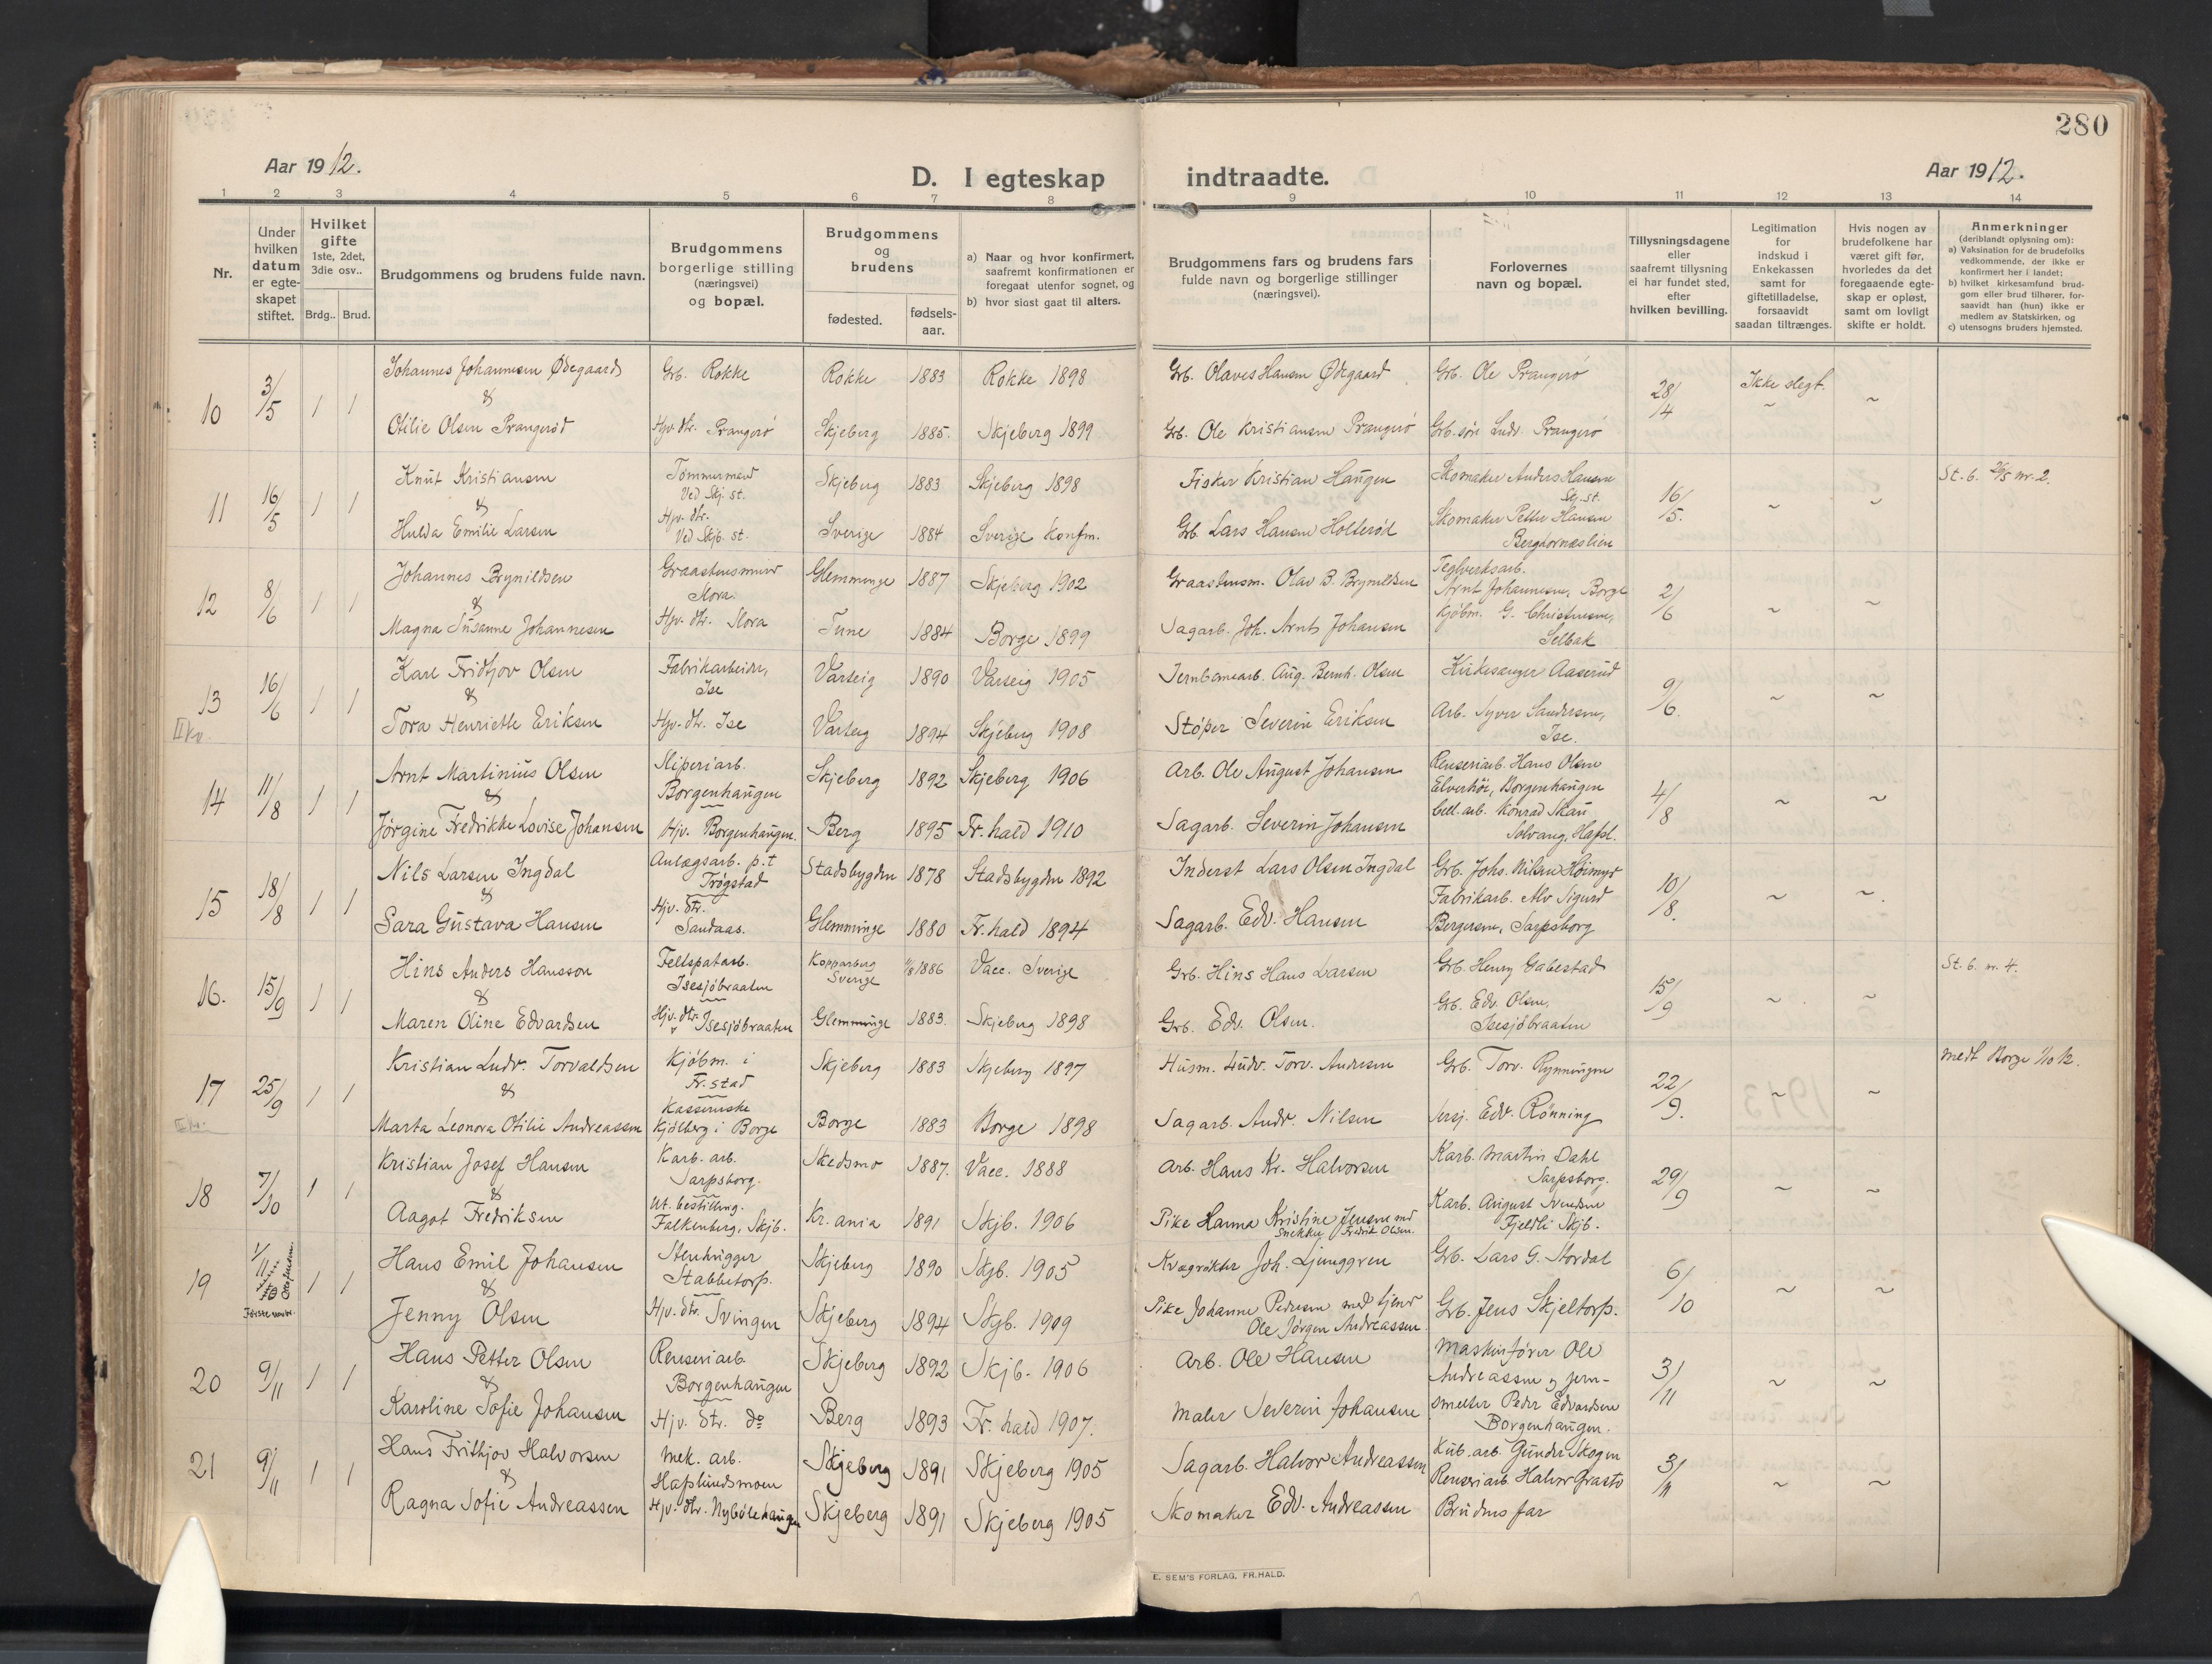 280
Aar 1912.
D. I egteskap indtraadte.
Aar 1912.
1 2 3 4 5 6 7 8 9 10 11 12 13 14
Nr.
Under hvilken datum er egte-skapet stiftet.
Hvilket gifte 1ste, 2det, 3die osv..
Brdg.. Brud.
Brudgommens og brudens fulde navn.
Brudgommens borgerlige stilling (næringsvei) og bopæl.
Brudgommens og brudens
fødested. fødsels-aar.
a) Naar og hvor konfirmert, saafremt konfirmationen er foregaat utenfor sognet, og
b) hvor sidst gaat til alters.
Brudgommens fars og brudens fars fulde navn og borgerlige stillinger (næringsvei).
Forlovernes navn og bopæl.
Tillysningsdagene eller saafremt tillysning ei har fundet sted, efter hvilken bevilling.
Legitimation for indskud i Enkekassen samt for giftetilladelse, forsaavidt saadan tiltrænges.
Hvis nogen av brudefolkene har været gift før, hvorledes da det foregaaende egte-skap er opløst, samt om lovligt skifte er holdt.
Anmerkninger
(deriblandt oplysning om):
a) Vaksination for de brudefolks vedkommende, der ikke er konfirmert her i landet;
b) hvilket kirkesamfund brud-gom eller brud tilhører, for-saavidt han (hun) ikke er medlem av Statskirken, og
c) utensogns bruders hjemsted.
10 3/5 1 1 Johannes Johannesen Ødegaard Grb. Rokke Rokke 1883 Rokke 1898 Grb. Olaves Hansen Ødegaard Grb. Ole Prangerö 28/4 Ikke slegt. ~
&
Otilie Olsen Prangeröd Hjv. dtr. Prangerö Skjeberg 1885. Skjeberg 1899 Grb. Ole Kristiansen Prangerö Grb. søn Ludv. Prangerö
11 16/5 1 1 Knut Kristiansen Tømmermand Ved Skj. st. Skjeberg 1883 Skjeberg 1898 Fisker Kristian Haugen Skomaker Anders Hansen Skj. st. 16/5. ~ ~ St. 6. 26/5 nr. 2.
&
Hulda Emilie Larsen Hjv. dtr. Ved Skjb. st. Sverige 1884 Sverige konfm. Grb. Lars Hansen Holteröd Skomaker Petter Hansen
12 8/6 1 1 Johannes Brynildsen Graastensminør Skjeberg Glemminge 1887 Skjeberg 1902 Graastensm. Olav B. Brynildsen Teglverksarb. Arnt Johannesen, Borge 2/6 ~ ~
&
Magna Susanne Johannesen Hjv. dtr. Tune 1884 Borge 1899 Sagarb. Joh. Arnt Johansen Kjøbm. G. Christensen, Selbak
13 16/6 1 1 Karl Fridtjov Olsen Fabrikarbeider, Ise Varteig 1890 Varteig 1905 Jernbanearb. Aug. Bernh. Olsen Kirkesanger Aaserud 9/6. ~ ~
&
II kv. Tora Henriette Eriksen Hjv. dtr. Ise Varteig 1894 Skjeberg 1908 Støper Severin Eriksen Arb. Syver Sandersen, Ise.
14 11/8 1 1 Arnt Martinius Olsen Sliperiarb. Borgenhaugen Skjeberg 1892 Skjeberg 1906 Arb. Ole August Johansen Renseriarb. Hans Olsen Elverhöi, Borgenhaugen 4/8 ~ ~
&
Jørgine Fredrikke Lovise Johansen Hjv. Borgenhaugen. Berg 1895 Fr. hald 1910 Sagarb. Severin Johansen Cell. arb. Konrad Skau Solvang, Hafsl.
15 18/8 1 1 Nils Larsen Ingdal Anlægsarb. p.t Trøgstad Stadsbygden 1878 Stadsbygden 1892 Inderst Lars Olsen Ingdal Grb. Johs. Nilsen Høimyr 10/8. ~ ~
&
Sara Gustava Hansen Hjv. dtr. Sandaas. Glemminge 1880 Fr. hald 1894 Sagarb. Edv. Hansen Fabrikarb. Alv Sigurd Bergersen, Sarpsborg
16. 15/9 1 1 Hins Anders Hansson Feltspatarb. Isesjöbraaten Kopparberg Sverige 1886 Vacc. Sverige Grb. Hins Hans Larsen Grb. Henry Gabestad 15/9 ~ ~ St. 6. n. 4.
&
Maren Oline Edvardsen Hjv. dtr. Isesjöbraaten Glemminge 1883. Skjeberg 1898 Grb. Edv. Olsen. Grb. Edv. Olsen, Isesjöbraaten
17 25/9 1 1 Kristian Ludv. Torvaldsen Kjöbm. i Fr. stad Skjeberg 1883 Skjeberg 1897 Husm. Ludv. Torv. Andersen Grb. Torv. Rynningen 22/9. ~ ~ medt Borge 1/10 12.
&
Marta Leonora Otilie Andreassen Kassererske Kjölberg i Borge Borge 1883 Borge 1898 Sagarb. Andr. Nilsen Edv. Rönning
18 7/10 1 1 Kristian Josef Hansen Karb. arb. Sarpsborg. Skedsmo 1887. Vacc. 1888 Arb. Hans Kr. Halvorsen Karb. Martin Dahl Sarpsborg. 29/9 ~ ~
&
Aagot Fredriksen Ut. bestilling. Falkenberg, Skjb. Kr. ania 1891 Skjb. 1906 Pike Hanna Kristine Jensen med Snekker Fredrik Olsen. Karb. August Svendsen Fjeldli Skjb.
19 1/11 Første novbr. 1 1 Hans Emil Johansen Stenhugger Stabbetorp. Skjeberg 1890 Skjb. 1905 Kvægrökter Joh. Ljunggren Grb. Lars G. Stordal 6/10 ~ ~
&
Jenny Olsen Hjv. dtr. Svingen Skjeberg 1894 Skjb. 1909 Pike Johanne Pedersen med tjener Ole Jørgen Andreassen. Grb. Jens Skjeltorp.
20 9/11 1 1 Hans Petter Olsen Renseriarb. Borgenhaugen Skjeberg 1892 Skjb. 1906 Arb. Ole Hansen Maskinfører Ole Andreassen og jern- 3/11 ~ ~
&
Karoline Sofie Johansen Hjv. dtr. do Berg 1893 Fr. hald 1907. Maler Severin Johansen smelter Peder Edvardsen Borgenhaugen.
21 9/11 1 1 Hans Frithjov Halvorsen Mek. arb. Hafslundsmoen Skjeberg 1891 Skjeberg 1905 Sagarb. Halvor Andreassen Kub. arb. Gunder Skogen Renseriarb. Halvor Grasto 3/11 ~ ~
&
Ragna Sofie Andreassen Hjv. dtr. Nybölehaugen Skjeberg 1891 Skjeberg 1905 Skomaker Edv. Andreassen Brudens far
E. SEM'S FORLAG, FR.HALD.